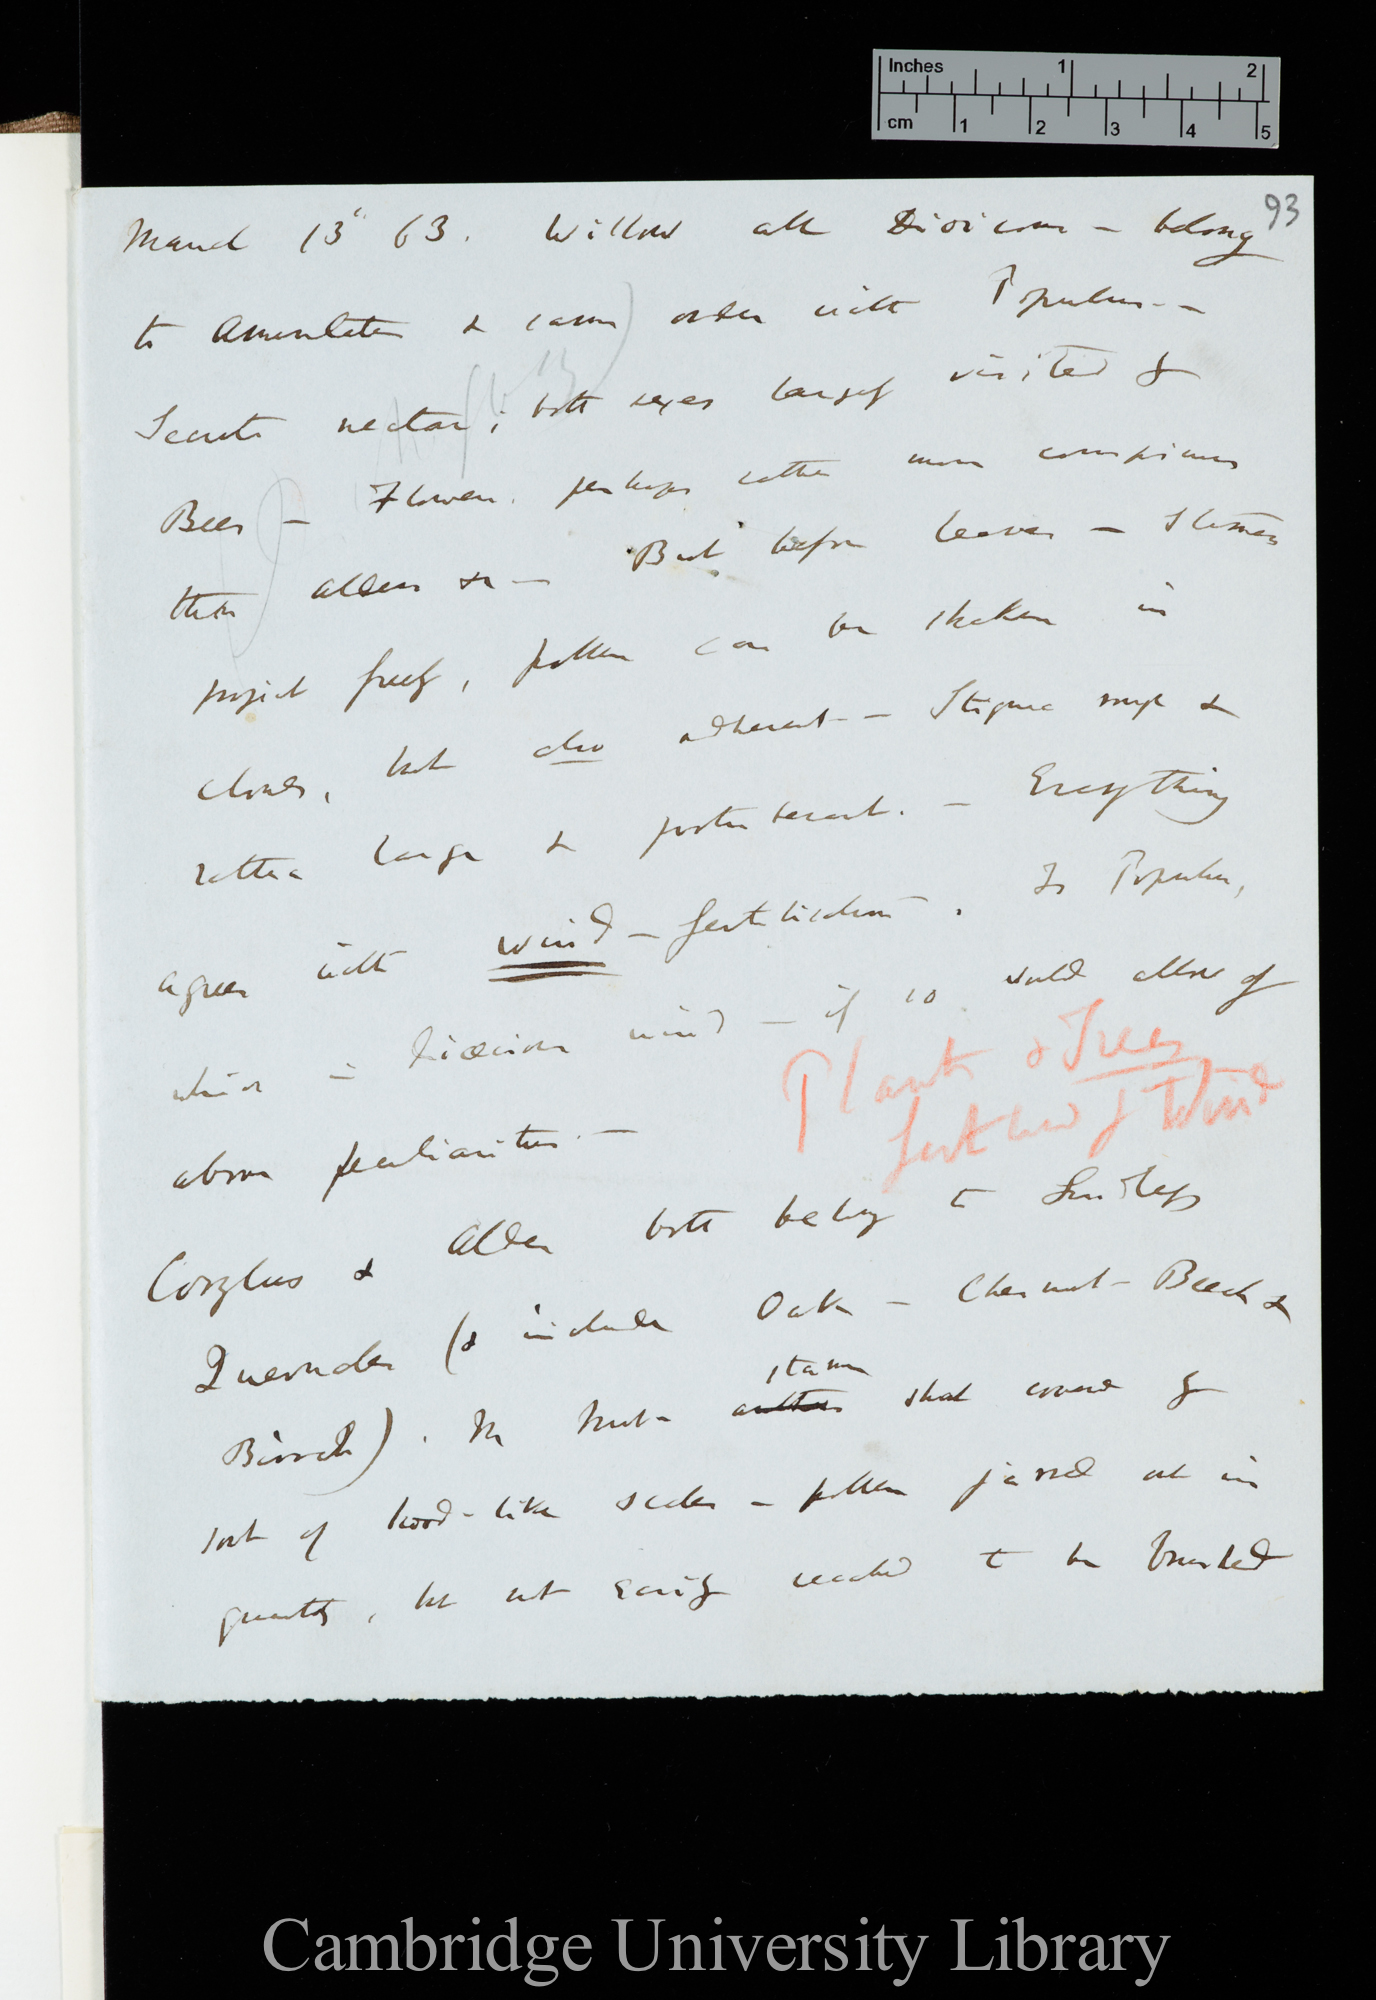 Inches 1 2
cm 1 2 3 4 5
93
March 13th 63. Willow all Dioicous — belong
to Amentaceæ & same order with Populus. —
Secrete nectar; both sexes largely visited by
Bees — Flowers perhaps rather more conspicuous
than alders &c — But before leaves — Stamens
project freely, pollen can be shaken in
clouds, but also adherent — Stigma rough &
rather large & protuberant. — Everything
agrees with wind-fertilisation. Is Populus,
which is Diœcious wind — if so would allow of
above peculiarities. —
Plants & Trees
fertilised by Wind
Corylus & Alder both belong to
Quercudes (& includes Oak — Chesnut — Beech &
Birch). In Nut — anthers stamens short covered by
sort of hood-like scales — pollen jarred out in
quantity, but not easily to be brushed
Cambridge University Library